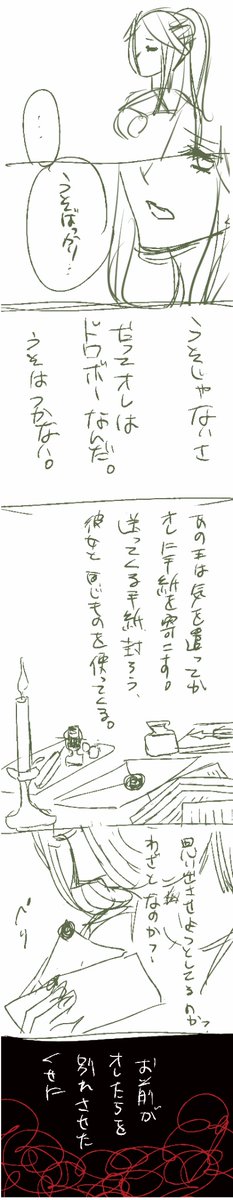 …
うそばっかり…
うそじゃないさ
だってオレは
ドロボーなんだ。
うそはつかない。
あの王は気を遣ってか
オレに手紙を寄こす。
送ってくる手紙封ろう、
彼女と同じものを使ってくる。
思い出させようとしてるのか？
わざとなのか？
べり
お前が
オレたちを
別れさせた
くせに